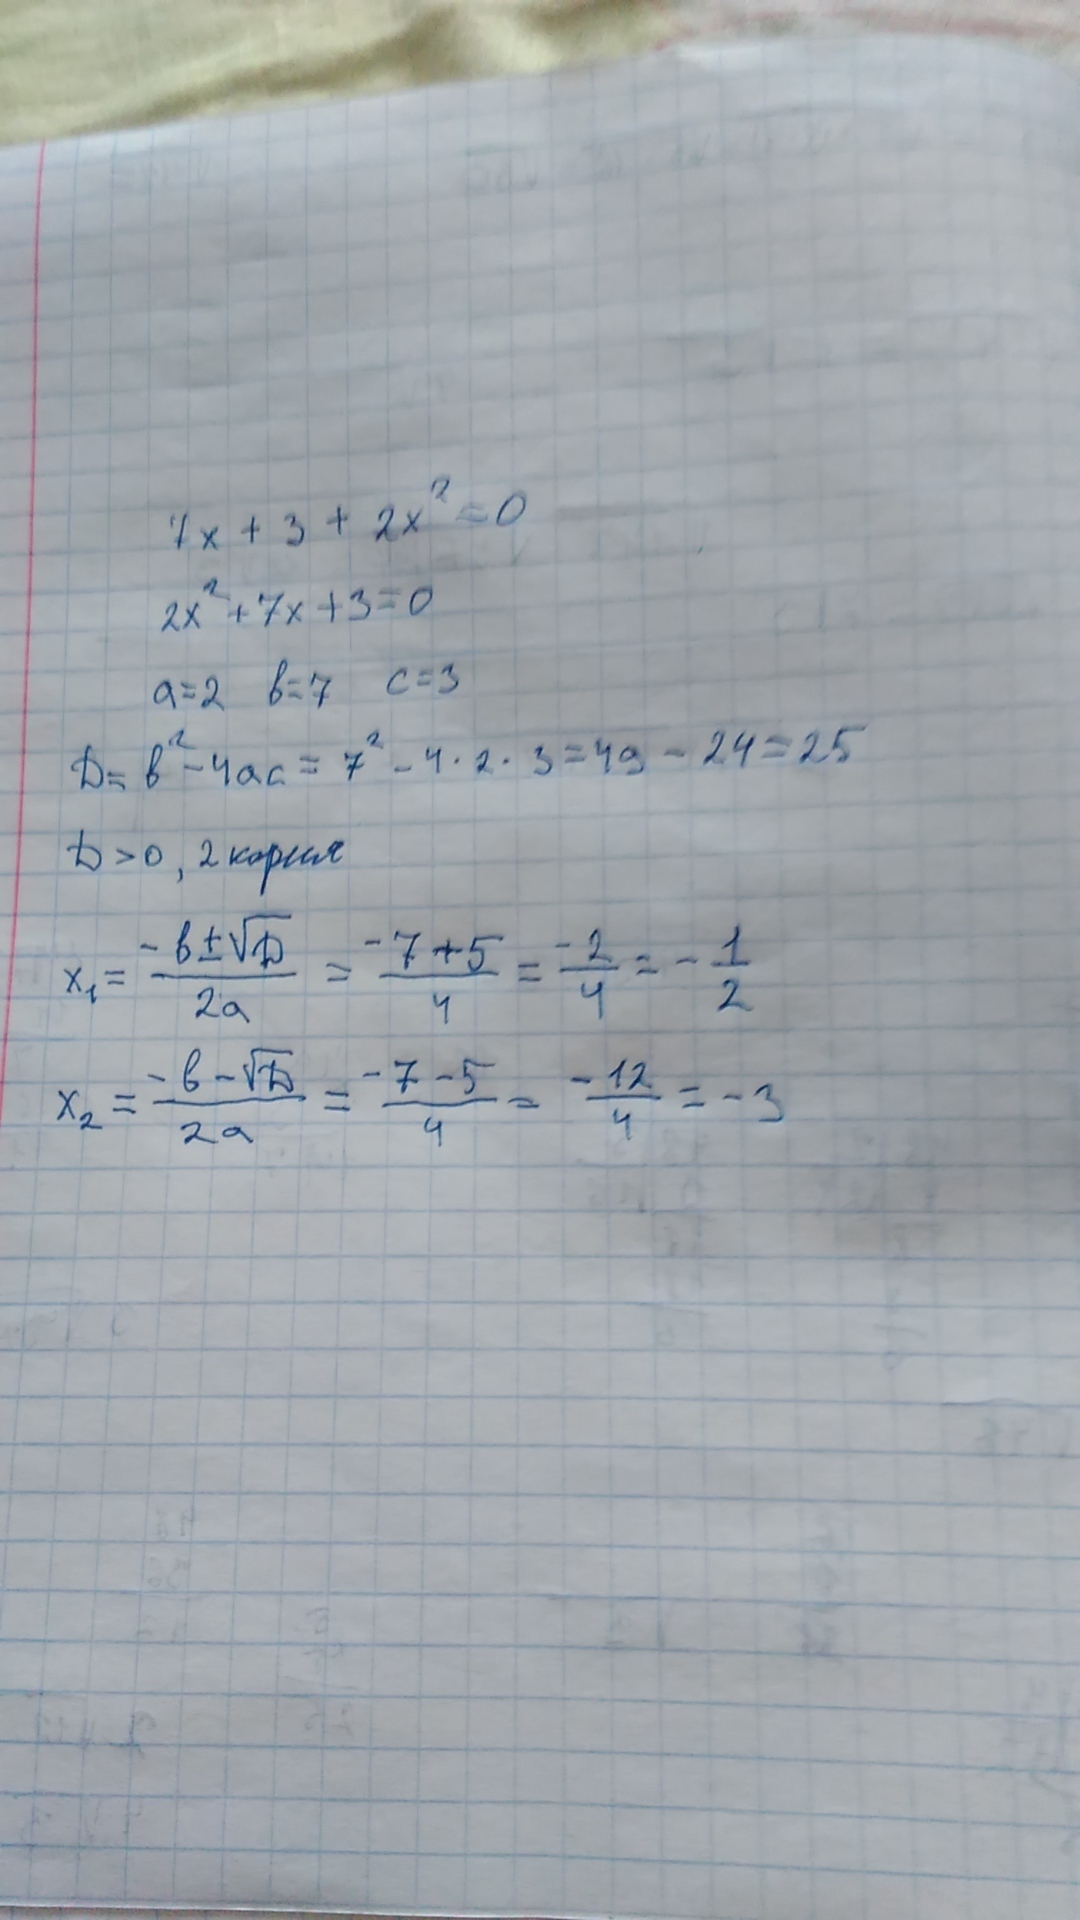 7x + 3 + 2x² = 0
2x² + 7x + 3 = 0
a=2 b=7 c=3
D= b² - 4ac = 7² - 4·2·3 = 49 - 24 = 25
D > 0, 2 корня
x₁ = (-b±√D)/(2a) = (-7+5)/4 = (-2)/4 = -1/2
x₂ = (-b-√D)/(2a) = (-7-5)/4 = (-12)/4 = -3